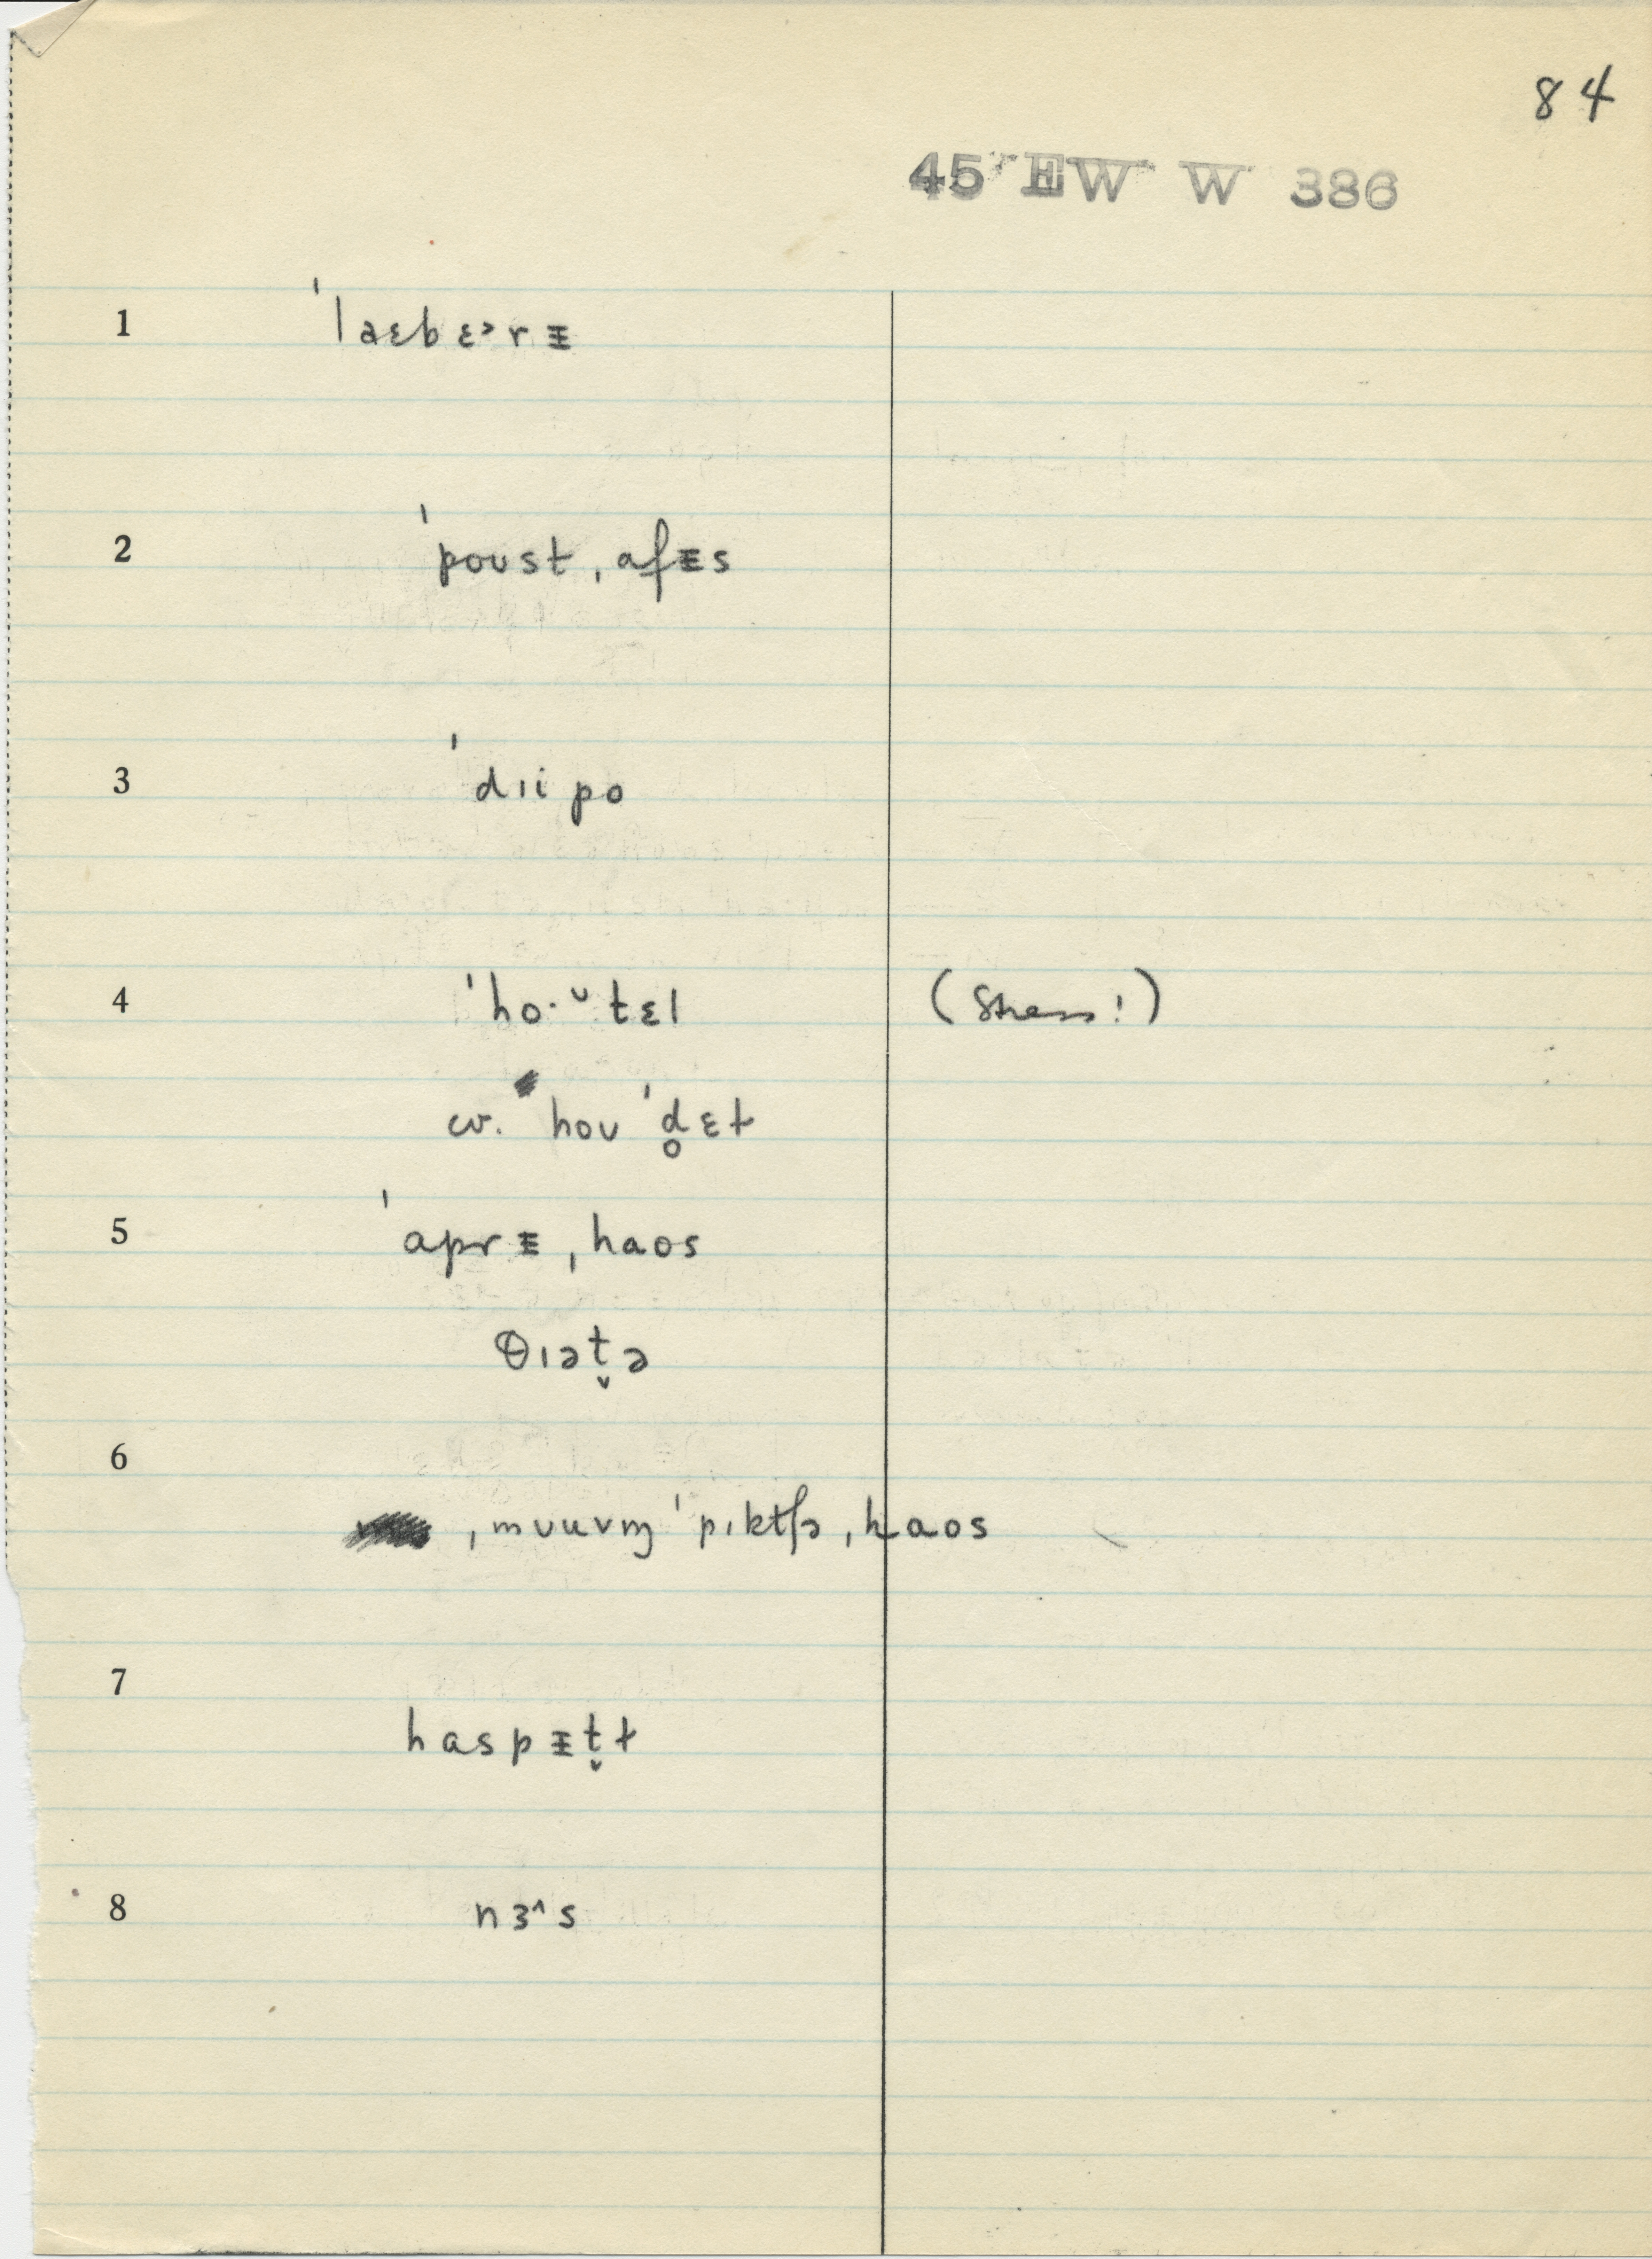 84
45 EW W 386
1 ˈlaɛbɛ˃rᵻ
2 ˈpoʊst ˌafᵻs
3 ˈdɪipo
4 ˈhoˑᶷtɛl (Stress!)
cv. hoʊˈd̥ɛt
5 ˈaprᵻ ˌhaos
θɪət̬ə
6
ˌmʊuvɪŋ ˈpɪktʃə ˌhaos
7
haspᵻt̬ɫ
8 nɜ^s